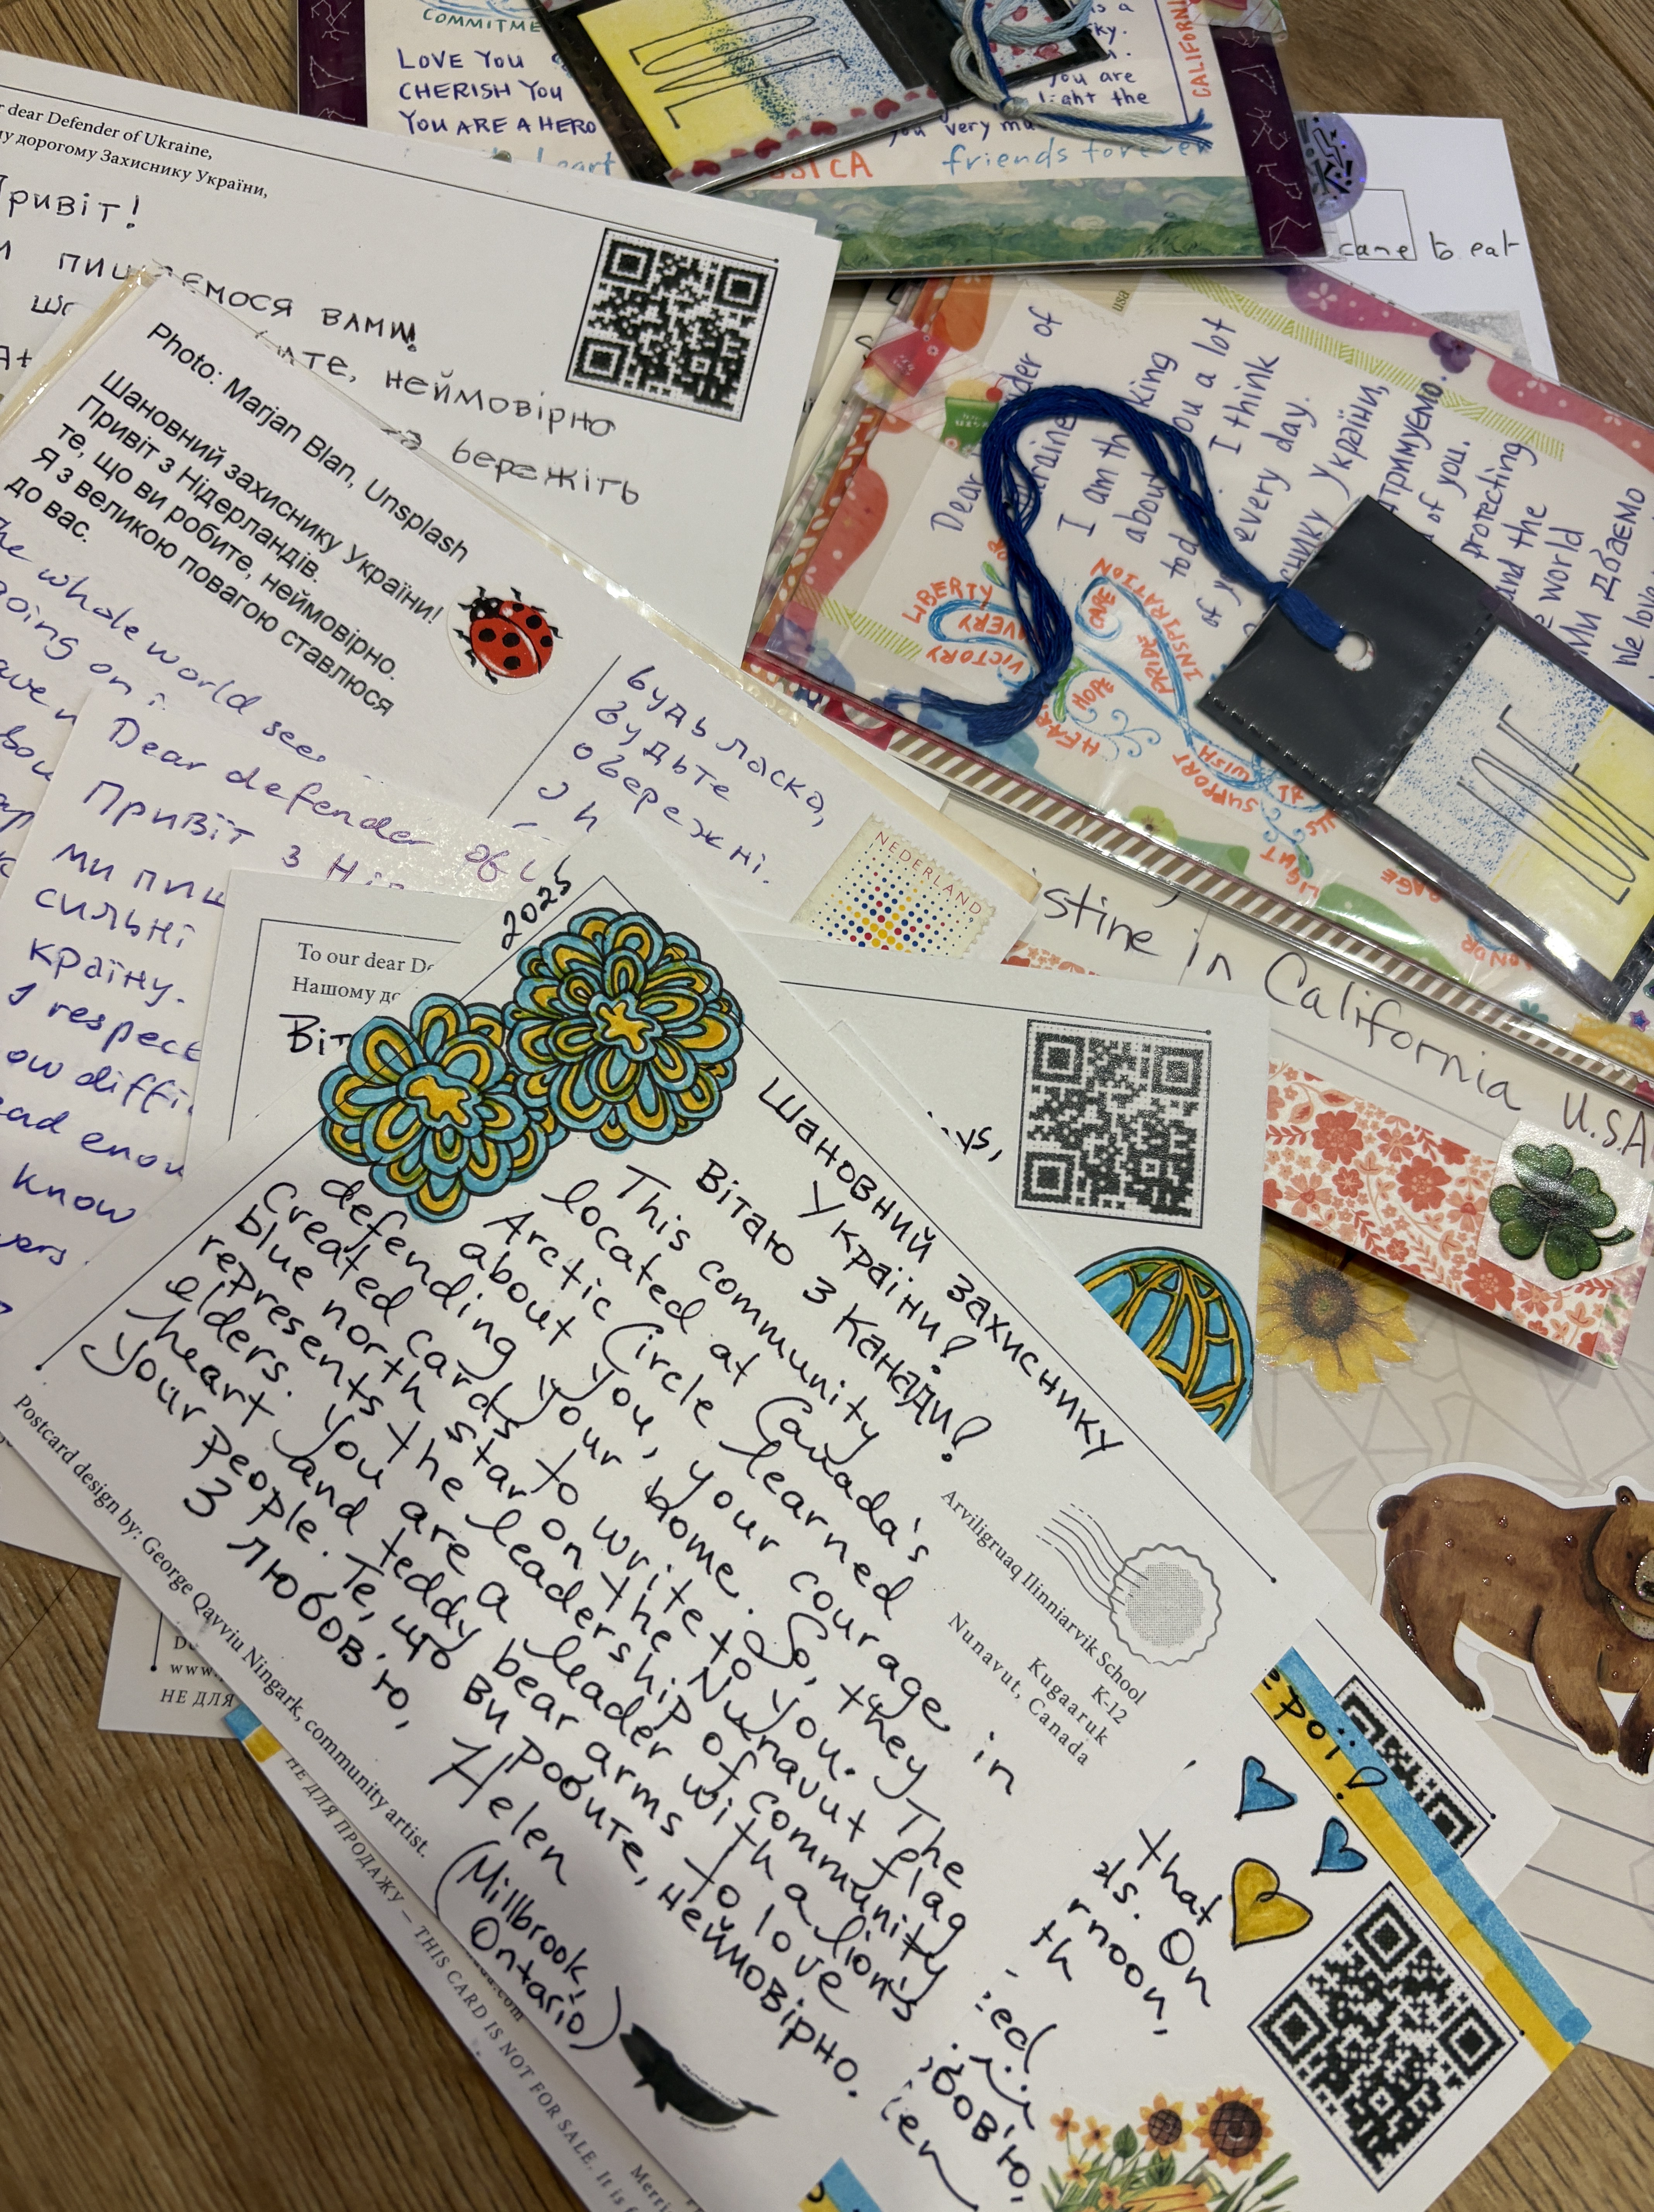 COMMITME
LOVE YOU
CHERISH YOU
YOU ARE A HERO
heart
LOVE
is a
ky.
you are
light the
you very mu
SSICA
friends forever
CALIFORNI
r dear Defender of Ukraine,
у дорогому Захиснику України,
ривіт!
шемося вами!
ате, неймовірно
бережіть
came to eat
Photo: Marjan Blan, Unsplash
Шановний захиснику України!
Привіт з Нідерландів.
те, що ви робите, неймовірно.
Я з великою повагою ставлюся
до вас.
he whole world sees
going on i
будь ласка,
будьте
обережні.
NEDERLAND
Dear defender of U
Привіт з Ні
ми пиш
сильні
країну.
I respect
ow diffi
ead enou
know
usa
Dear
der of
raine
I am th
king
about
ou a lot
tod
I think
of y
every day.
снику України,
тримуємо.
of you.
protecting
and the
e world
Ми дбаємо
We love
LIBERTY
AVERY
VICTORY
HOPE
HEAR
PRIDE
INSPIRATION
SUPPORT
WISH
LIGHT
LOVE
stine in California U.S.A
To our dear De
Нашому до
Віт
ys,
2025
Шановний захиснику
України!
Вітаю з Канади!
This community
located at Canada's
Arctic Circle learned
about you, your courage in
defending your home. So, they
created cards to write to you. The
blue north star on the Nunavut flag
represents the leadership of community
elders. You are a leader with a lion's
heart and teddy bear arms to love
your people. Те, що ви робите, неймовірно.
З любов'ю, Helen
(Millbrook,
Ontario)
Arviligruaq Ilinniarvik School
K-12
Kugaaruk
Nunavut, Canada
Postcard design by: George Qavviu Ningark, community artist.
www.
НЕ ДЛЯ
НЕ ДЛЯ ПРОДАЖУ — THIS CARD IS NOT FOR SALE. It is
w.com
Merri
ерої!
that
ds. On
rnoon,
th
ed
бов'ю,
len